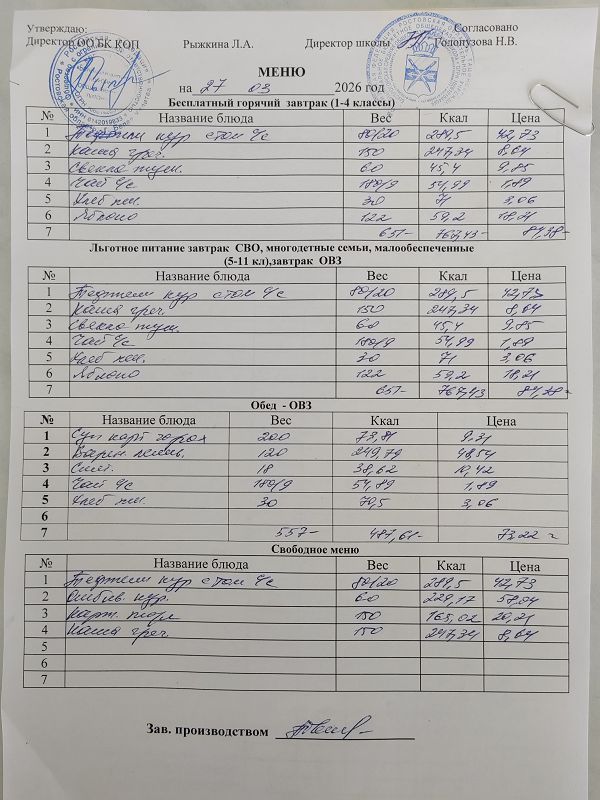 Утверждаю:
Согласовано
Директор ОО БК КОП Рыжкина Л.А. Директор школы Голопузова Н.В.
МЕНЮ
на 27 03 2026 год
Бесплатный горячий завтрак (1-4 классы)
№ Название блюда Вес Ккал Цена
1 Тефтели кур с том с/с 80/20 289,5 42,73
2 Каша греч. 150 247,34 8,04
3 Свекла туш. 60 45,4 9,85
4 Чай с/с 180/9 54,99 1,89
5 Хлеб пш. 30 71 3,06
6 Яблоко 122 59,2 18,21
7 651- 767,43-
Льготное питание завтрак СВО, многодетные семьи, малообеспеченные
(5-11 кл),завтрак ОВЗ
№ Название блюда Вес Ккал Цена
1 Тефтели кур с том с/с 80/20 289,5 42,73
2 Каша греч. 150 247,34 8,04
3 Свекла туш. 60 45,4 9,85
4 Чай с/с 180/9 54,99 1,89
5 Хлеб пш. 30 71 3,06
6 Яблоко 122 59,2 18,21
7 651- 767,43
Обед - ОВЗ
№ Название блюда Вес Ккал Цена
1 Суп карт горох 200 73,81 9,31
2 Варен. пельм. 120 249,79 48,54
3 Смет. 18 38,62 10,42
4 Чай с/с 180/9 54,89 1,89
5 Хлеб пш. 30 70,5 3,06
6
7 557- 487,61- 73,22
Свободное меню
№ Название блюда Вес Ккал Цена
1 Тефтели кур с том с/с 80/20 289,5 42,73
2 Отбивн. кур. 60 229,17 58,04
3 Карт. пюре 150 165,02 20,21
4 Каша греч. 150 247,34 8,04
5
6
7
Зав. производством